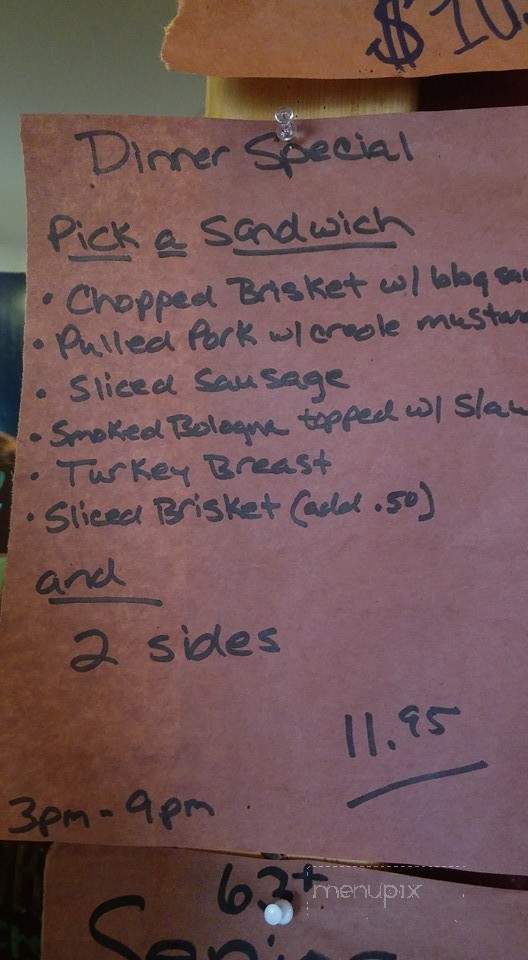 $10.
Dinner Special
Pick a Sandwich
• Chopped Brisket w/ bbq sau
• Pulled Pork w/ creole mustar
• Sliced Sausage
• Smoked Bologna topped w/ Slaw
• Turkey Breast
• Sliced Brisket (add .50)
and
2 sides
11.95
3pm - 9pm
63+
menupix
Senior